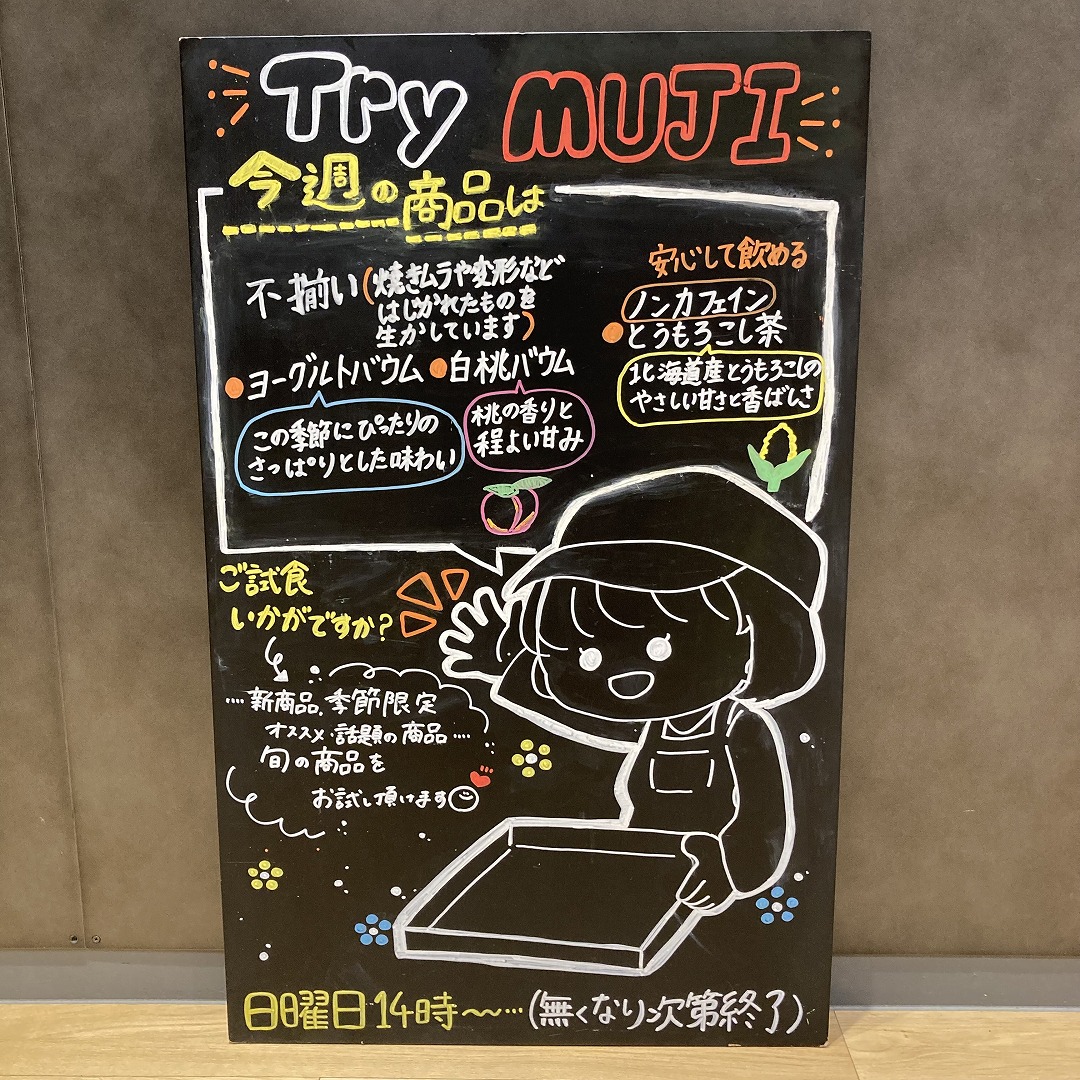 Try MUJI
今週の商品は
不揃い(焼きムラや変形など
はじかれたものを
生かしています)
ヨーグルトバウム
この季節にぴったりの
さっぱりとした味わい
白桃バウム
桃の香りと
程よい甘み
安心して飲める
ノンカフェイン
とうもろこし茶
北海道産とうもろこしの
やさしい甘さと香ばしさ
ご試食
いかがですか?
····新商品、季節限定
オススメ·話題の商品····
旬の商品を
お試し頂けます
日曜日14時〜···(無くなり次第終了)